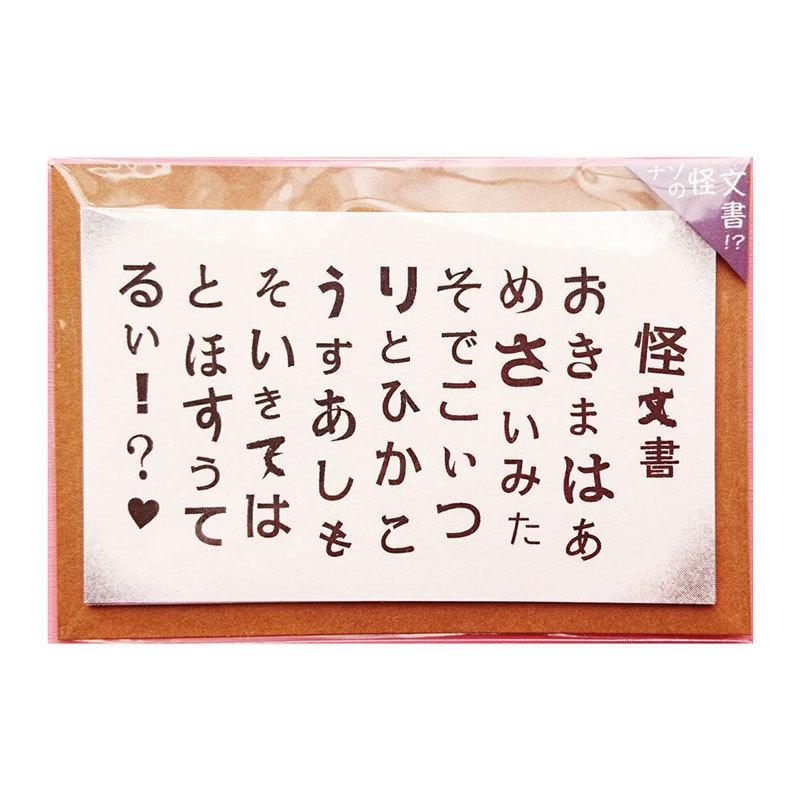 ナゾの怪文書!?
怪文書
おきまはぁ
めさぃみた
そでこぃつ
りとひかこ
うすあしも
そいきては
とほすぅて
るぃ!?♥